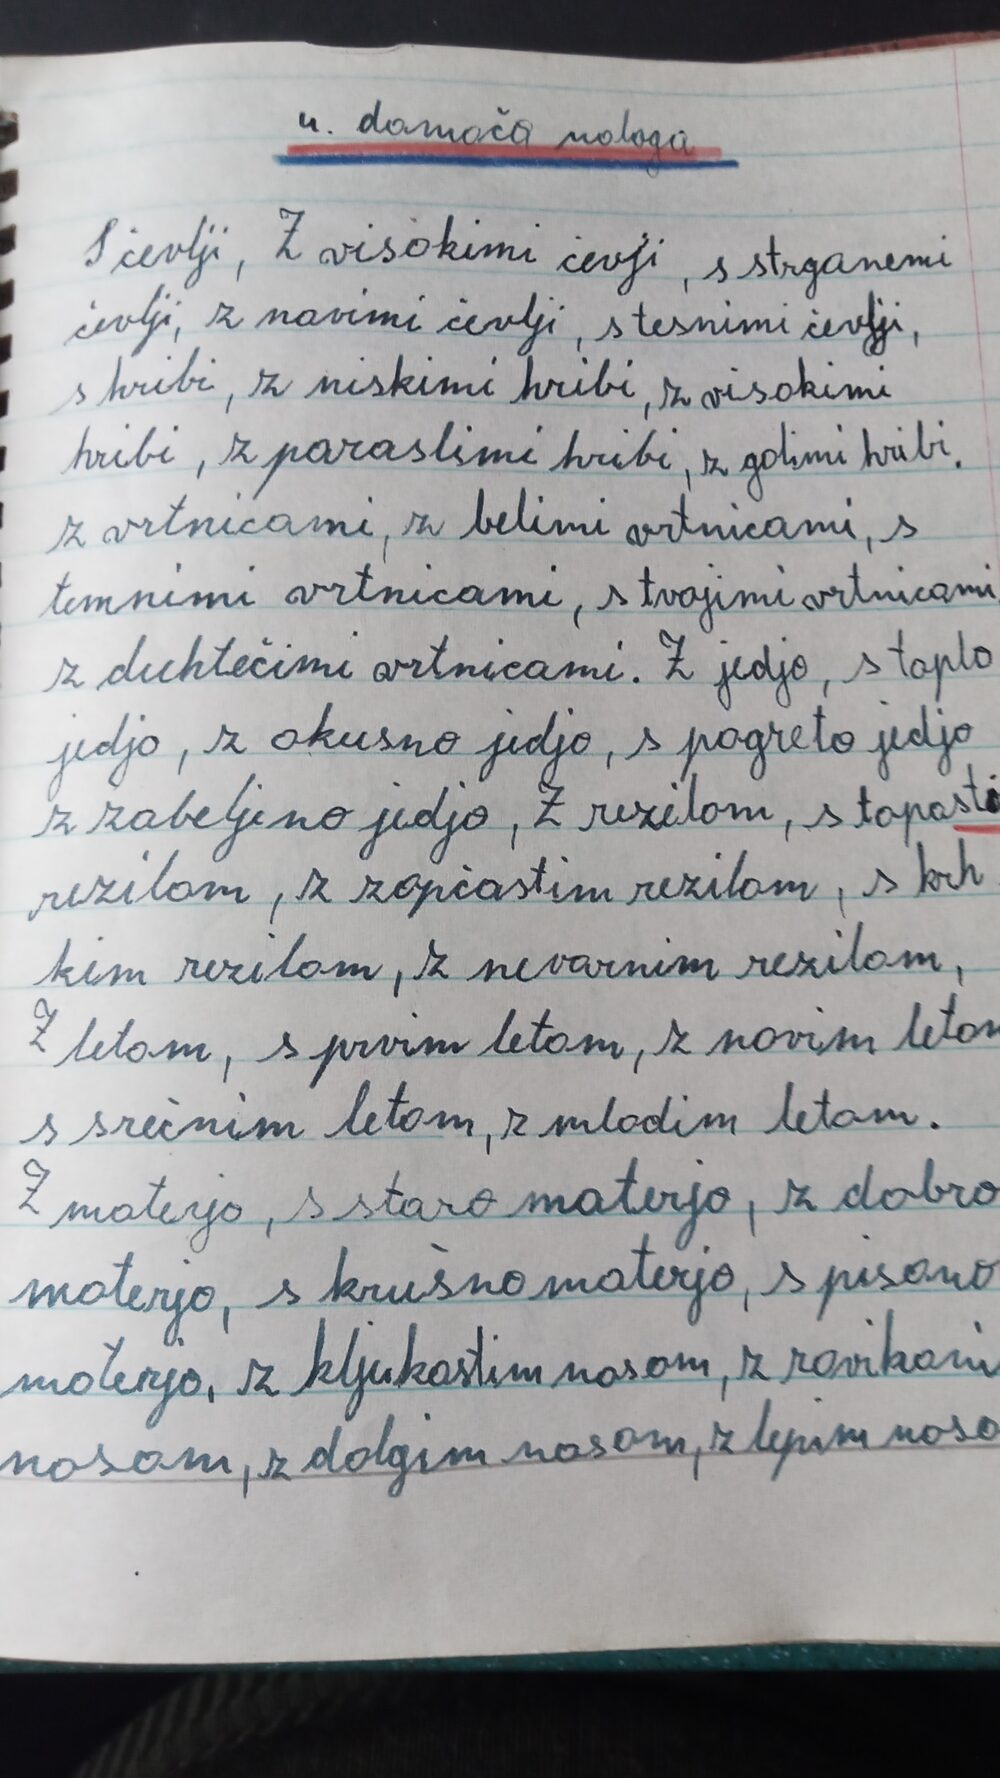 4. domača naloga
S čevlji, Z visokimi čevji, s strganemi
čevlji, z novimi čevlji, s tesnimi čevlji,
s hribi, z niskimi hribi, z visokimi
hribi, z poraslimi hribi, z golimi hribi.
z vrtnicami, z belimi vrtnicami, s
temnimi vrtnicami, s tvojimi vrtnicami
z duhtečimi vrtnicami. Z jedjo, s toplo
jedjo, z okusno jedjo, s pogreto jedjo
z zabeljeno jedjo, Z rezilom, s topasti
rezilom, z zopčastim rezilom, s krh
kim rezilom, z nevarnim rezilom,
Z letom, s prvim letom, z novim letom
s srečnim letom, z mladim letom.
Z materjo, s staro materjo, z dobro
materjo, s krušno materjo, s pisano
materjo, z kljukastim nosom, z ravikani
nosom, z dolgim nosom, z lepim noso